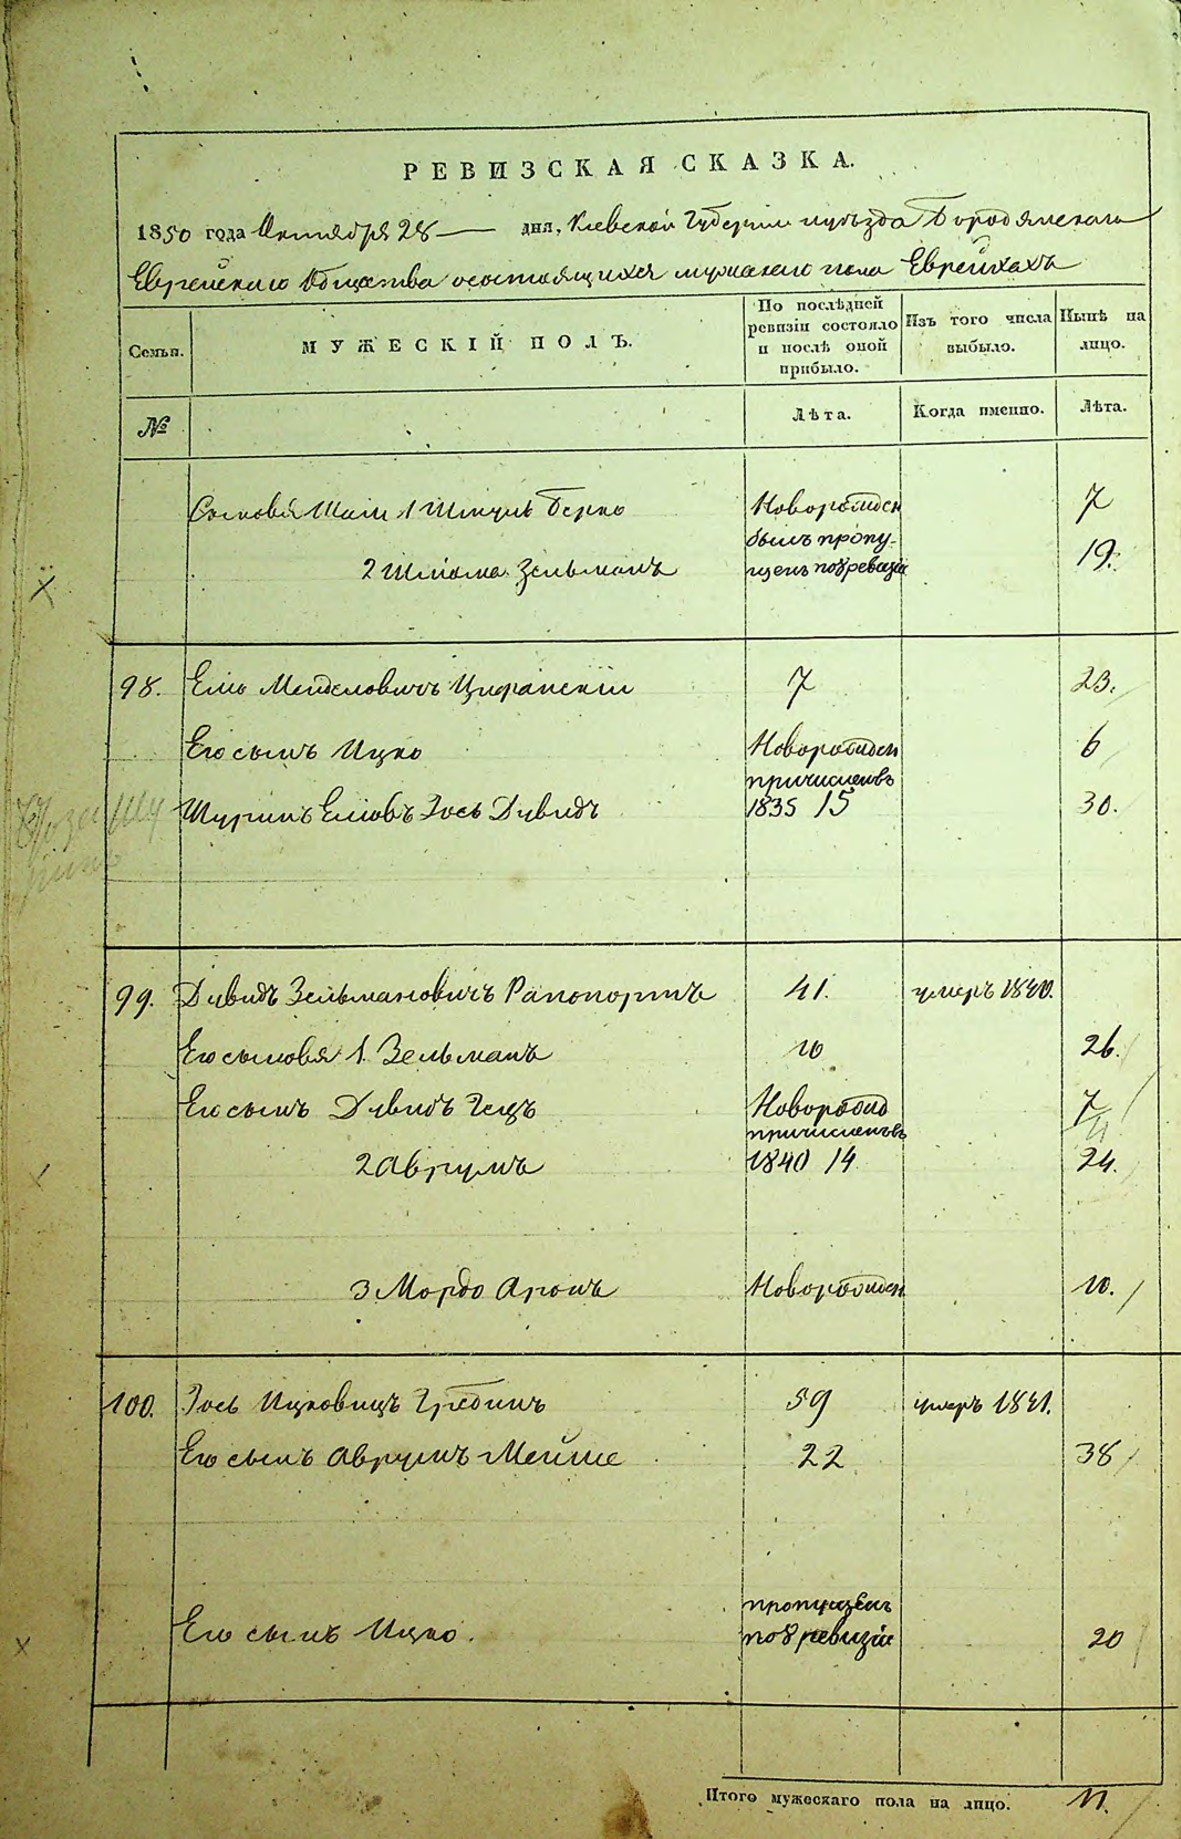 РЕВИЗСКАЯ СКАЗКА.
1850 года Октября 28 дня, Киевской Губернии и уезда Бородянскаго
Еврейскаго Общества о состоящихся мужескаго пола Евреихахъ
Семьи.
МУЖЕСКІЙ ПОЛЪ.
По послѣдней ревизіи состояло и послѣ оной прибыло.
Изъ того числа выбыло.
Нынѣ на лицо.
№
Лѣта.
Когда именно.
Лѣта.
Сыновья 1 Шмуль Берко Новорожден 7
2 Шлома Зельманъ былъ пропущенъ по 8 ревизіи 19.
98. Менделовичъ 7 23.
Его сынъ Ицко Новорожден 6
Шуринъ Іось Дувидъ причисленъ въ 1835 15 30.
99. Дувидъ Зельмановичъ Рапопортъ 41. умеръ 1840.
Его сыновья 1. Зельманъ 10 26.
Его сынъ Дувидъ Гецъ Новорожд 7
2 Аврумъ причисленъ въ 1840 14 24.
3 Мордо Аронъ Новорожден 10.
100. Іось Ицковицъ 59 умеръ 1841.
Его сынъ Аврумъ Мейше 22 38
Его сынъ Ицко. пропущенъ по 8 ревизіи 20
Итого мужескаго пола на лицо. 11.